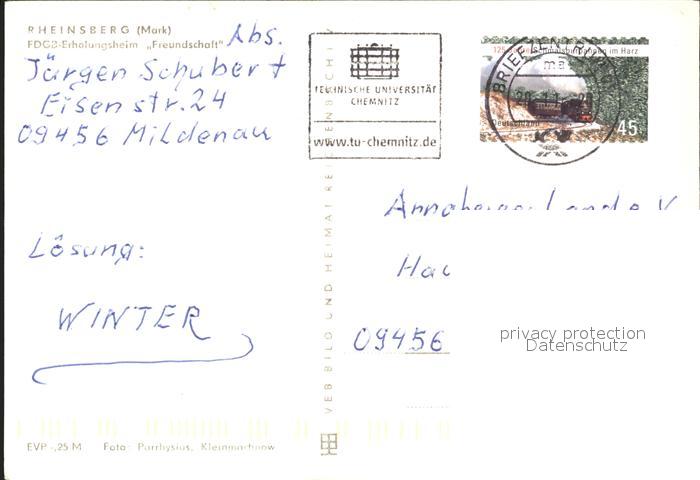 RHEINSBERG (Mark)
FDGB-Erholungsheim „Freundschaft"
Abs.
Jürgen Schubert
Eisenstr. 24
09456 Mildenau
Lösung:
WINTER
EVP -,25 M Foto: Parrhysius, Kleinmachnow
VEB BILD UND HEIMAT REICHENBACH i. V.
TECHNISCHE UNIVERSITÄT
CHEMNITZ
www.tu-chemnitz.de
125 Jahre Schmalspurbahnen im Harz
BRIEFZENTRUM
Deutschland
45
09456
privacy protection
Datenschutz